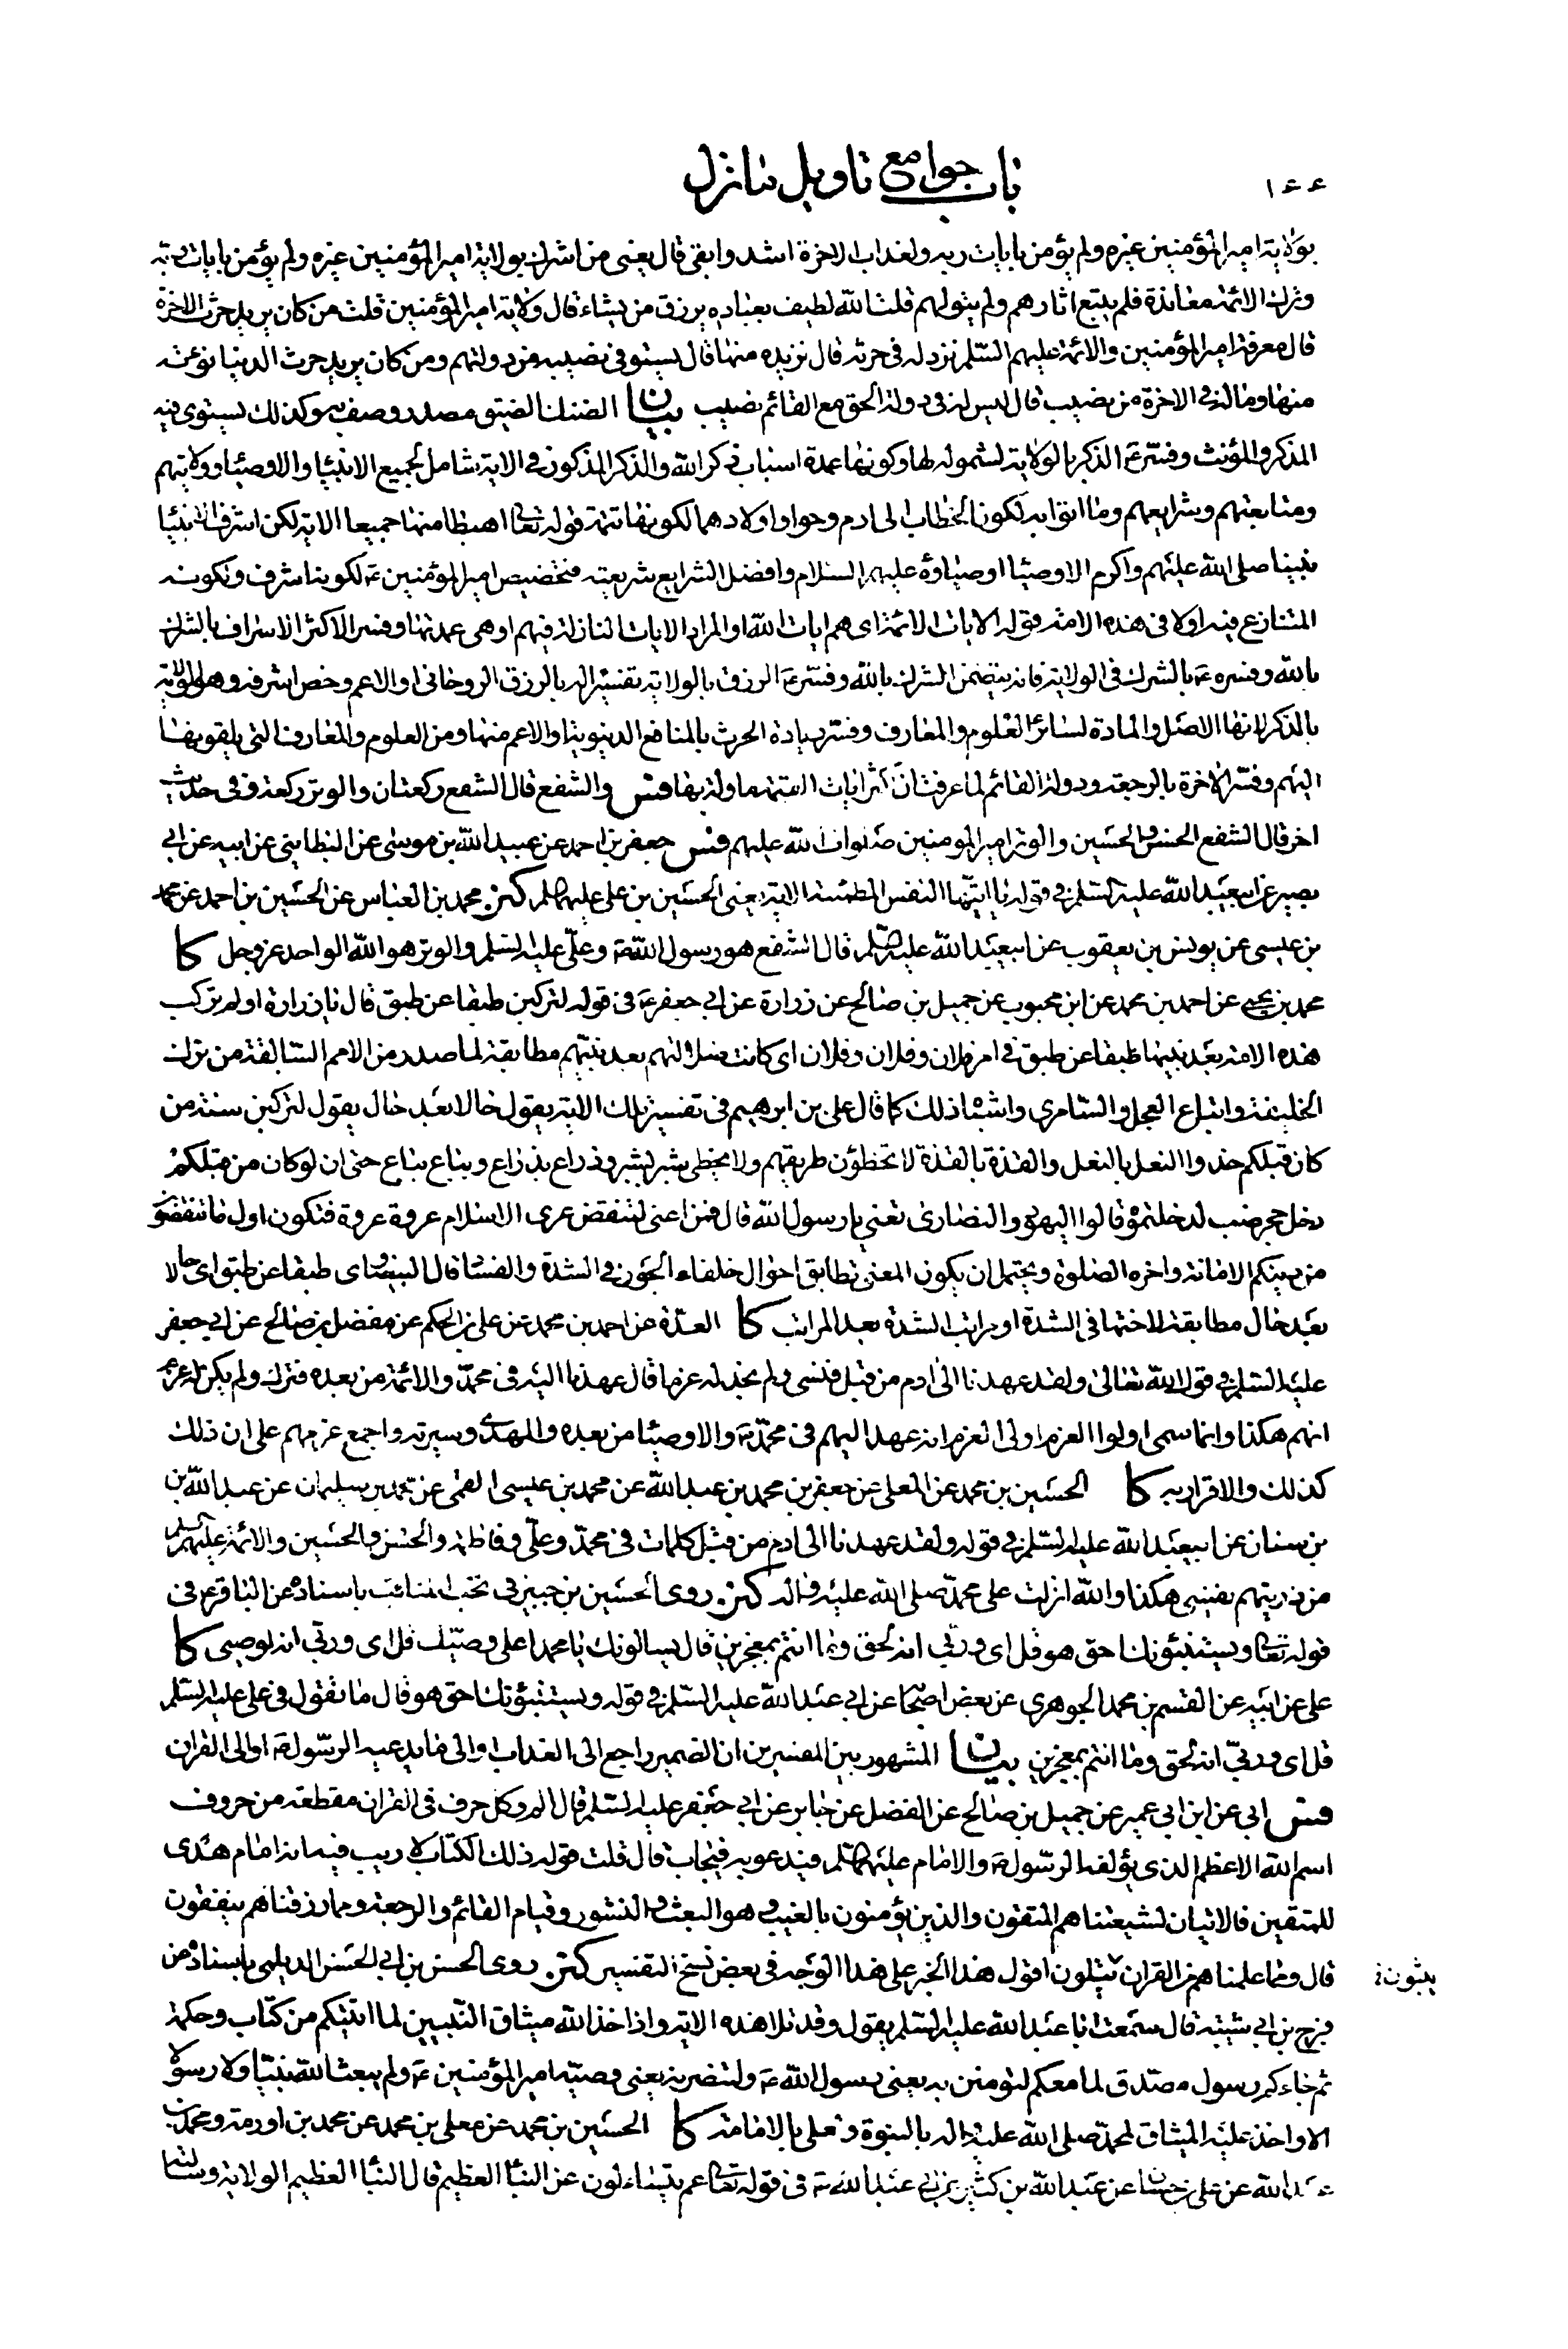 ١٤٤
باب جوامع تاويل ما نزل
بولاية امير المؤمنين غيره ولم يؤمن بايات ربه ولعذاب الاخرة اشد وابقى قال يعنى من اشرك بولاية امير المؤمنين غيره ولم يؤمن بايات ربه
وترك الائمة معاندة فلم يتبع اثارهم ولم يتولهم قلت الله لطيف بعباده يرزق من يشاء قال ولاية امير المؤمنين قلت من كان يريد حرث الاخرة
قال معرفة امير المؤمنين والائمة عليهم السلم نزد له في حرثه قال نزيده منها قال يستوفى نصيبه من دولتهم ومن كان يريد حرث الدنيا نؤته
منها وماله في الاخرة من نصيب قال ليس له في دولة الحق مع القائم نصيب بيان الضنك الضيق مصدر وصف به وكذلك يستوى فيه
المذكر والمؤنث وفسر ع الذكر بالولاية لشموله لها وكونها عمدة اسباب ذكر الله والذكر المذكور في الاية شامل لجميع الانبيا والاوصيا وولايتهم
ومتابعتهم وشرايعهم وما اتوا به لكون الخطاب الى ادم وحوا واولادهما لكونها تتمة قوله تعا اهبطا منها جميعا الاية لكن اشرف الانبيا
نبينا صلى الله عليهم واكرم الاوصيا اوصياوه عليهم السلام وافضل الشرايع شريعته فتخصيص امير المؤمنين ع لكونه اشرف ولكونه
المتنازع فيه اولا في هذه الامة قوله الايات الائمة اى هم ايات الله او المراد الايات النازلة فيهم او هى عمدتها وفسر الاكثر الاسراف بالشرك
بالله وفسره ع بالشرك في الولاية فانه يتضمن الشرك بالله وفسر ع الرزق بالولاية تفسيرا له بالرزق الروحانى او الاعم وخص اشرفه وهو الولاية
بالذكر لانها الاصل والمادة لسائر العلوم والمعارف وفسر زيادة الحرث بالمنافع الدنيوية او الاعم منها ومن العلوم والمعارف التى يلقونها
اليهم وفسر الاخرة بالرجعة ودولة القائم لما عرفت ان اكثر ايات القيمة ماولة بها فس والشفع قال الشفع ركعتان والوتر ركعة وفى حديث
اخر قال الشفع الحسن والحسين والوتر امير المومنين صلوات الله عليهم فس جعفر بن احمد عن عبيد الله بن موسى عن البطاينى عن ابيه عن ابى
بصير عن ابيعبد الله عليه السلم في قوله يا ايتها النفس المطمئنة الاية يعنى الحسين بن على عليهما السلم كنز محمد بن العباس عن الحسين بن احمد عن محمد
بن عيسى عن يونس بن يعقوب عن ابيعبد الله عليه السلم قال الشفع هو رسول الله ص وعلى عليه السلم والوتر هو الله الواحد عز وجل كا
محمد بن يحيى عن احمد بن محمد عن ابن محبوب عن جميل بن صالح عن زرارة عن ابى جعفر ع في قوله لتركبن طبقا عن طبق قال يا زرارة اولم تركب
هذه الامة بعد نبيها طبقا عن طبق في امر فلان وفلان وفلان اى كانت ضلالتهم بعد نبيهم مطابقة لما صدر من الامم السالفة من ترك
الخليفة واتباع العجل والسامرى واشباه ذلك كما قال على بن ابرهيم في تفسير تلك الاية يقول حالا بعد حال يقول لتركبن سنة من
كان قبلكم حذوا النعل بالنعل والقذة بالقذة لا تخطؤن طريقتهم ولا يخطى شبر بشبر وذراع بذراع وباع بباع حتى ان لو كان من قبلكم
دخل جحر ضب لدخلتموه قالوا اليهود والنصارى تعنى يا رسول الله قال فمن اعنى لتنقض عرى الاسلام عروة عروة فتكون اول ما تنقضون
من دينكم الامانة واخره الصلوة ويحتمل ان يكون المعنى تطابق احوال خلفاء الجور في الشدة والفسا قال البيضاوى طبقا عن طبق اى حالا
بعد حال مطابقة لاختها في الشدة او مراتب الشدة بعد المراتب كا العدة عن احمد بن محمد عن على بن الحكم عن مفضل بن صالح عن ابى جعفر
عليه السلم في قول الله تعالى ولقد عهدنا الى ادم من قبل فنسى ولم نجد له عزما قال عهدنا اليه في محمد والائمة من بعده فترك ولم يكن له عزم
انهم هكذا وانما سمى اولوا العزم اولى العزم انه عهد اليهم في محمد ص والاوصيا من بعده والمهدى وسيرته واجمع عزمهم على ان ذلك
كذلك والاقرار به كا الحسين بن محمد عن المعلى عن جعفر بن محمد بن عبد الله عن محمد بن عيسى القمى عن محمد بن سليمان عن عبد الله بن
بن سنان عن ابيعبد الله عليه السلم في قوله ولقد عهدنا الى ادم من قبل كلمات في محمد وعلى وفاطمة والحسن والحسين والائمة عليهم السلم
من ذريتهم فنسى هكذا والله انزلت على محمد صلى الله عليه واله كنز روى الحسين بن جبير في نخب المناقب باسناده عن الباقر ع في
قوله تعا ويستنبئونك احق هو قل اى وربى انه لحق وما انتم بمعجزين قال يسالونك يا محمد اعلى وصيك قل اى وربى انه لوصيى كا
على عن ابيه عن القسم بن محمد الجوهرى عن بعض اصحابنا عن ابى عبد الله عليه السلم في قوله ويستنبؤنك احق هو قال ما تقول في على عليه السلم
قل اى وربى انه لحق وما انتم بمعجزين بيان المشهور بين المفسرين ان الضمير راجع الى العذاب او الى ما يدعيه الرسول ص او الى القران
فس ابى عن ابن ابى عمير عن جميل بن صالح عن الفضل عن جابر عن ابى جعفر عليه السلم قال الم وكل حرف في القران مقطعة من حروف
اسم الله الاعظم الذى يؤلفه الرسول ص والامام عليهما السلم فيدعو به فيجاب قال قلت قوله ذلك الكتاب لا ريب فيه انه امام هدى
للمتقين فالايتان لشيعتنا هم المتقون والذين يؤمنون بالغيب وهو البعث والنشور وقيام القائم والرجعة ومما رزقناهم ينفقون
قال ومما علمناهم من القران يتلون اقول هذا الخبر على هذا الوجه في بعض نسخ التفسير كنز روى الحسن بن ابى الحسن الديلمى باسناده عن
يبثون خ
فرج بن ابى شيبة قال سمعت ابا عبد الله عليه السلم يقول وقد تلا هذه الاية واذ اخذ الله ميثاق النبيين لما اتيتكم من كتاب وحكمة
ثم جاءكم رسول مصدق لما معكم لتومنن به يعنى رسول الله ص ولتنصرنه يعنى وصيه امير المؤمنين ع ولم يبعث الله نبيا ولا رسولا
الا واخذ عليه الميثاق لمحمد صلى الله عليه واله بالنبوة ولعلى بالامامة كا الحسين بن محمد عن معلى بن محمد عن محمد بن اورمة ومحمد بن
عبد الله عن على بن حسان عن عبد الله بن كثير عن ابى عبد الله ع في قوله تعا عم يتساءلون عن النبأ العظيم قال النبأ العظيم الولاية وسالته